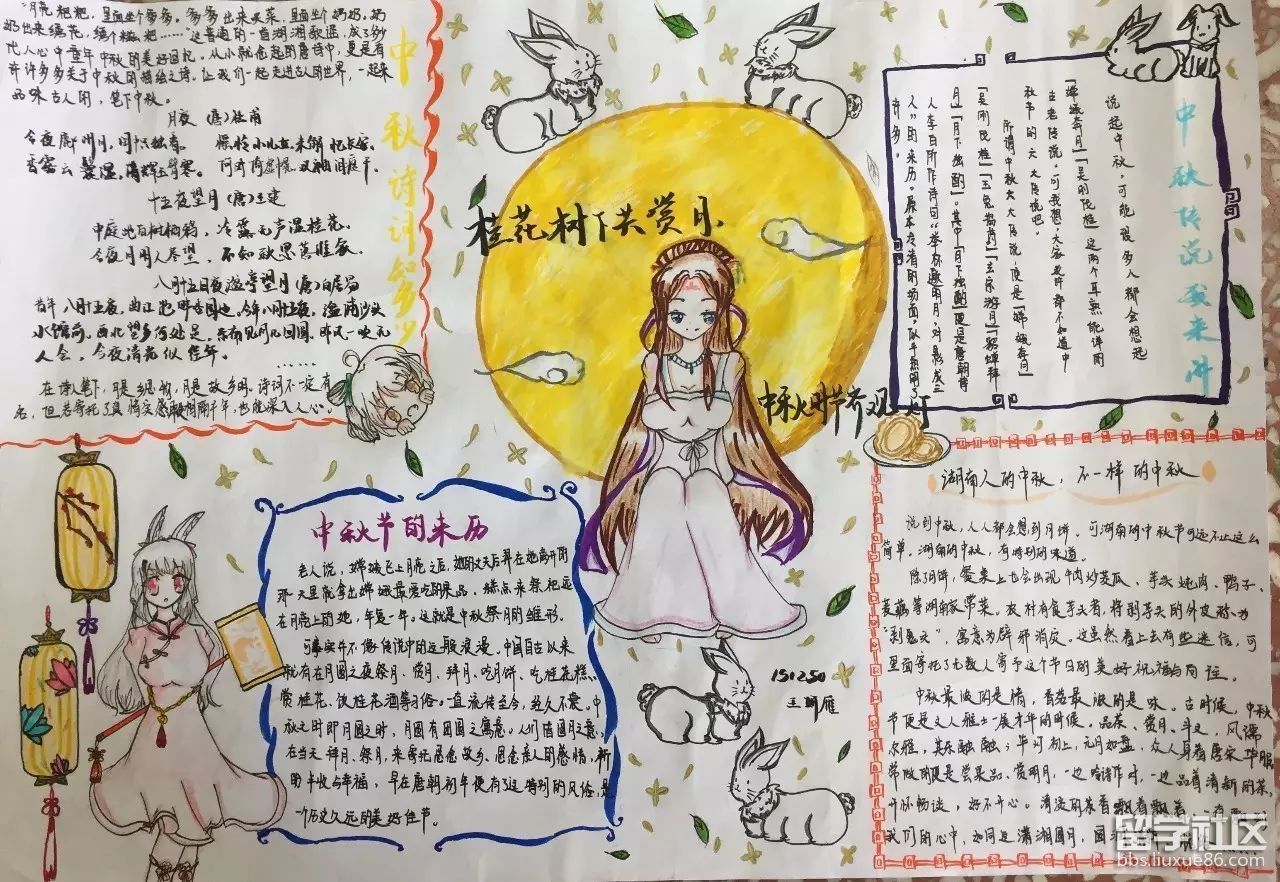 "月亮粑粑,里面坐个爹爹。爹爹出来买菜,里面坐个奶奶。奶
奶出来绣花,绣个糍粑……"这普通的一首湖湘歌谣,成了
人心中童年中秋的美好回忆。从小就念起的唐诗中,更是有
许许多多关于中秋的
之诗。让我们一起走进古人的世界,一起来
品味古人的笔下中秋。
月夜 (唐)杜甫
今夜鄜州月,闺中只独看。 遥怜小儿女,未解忆长安。
香雾云鬟湿,清辉玉臂寒。 何时倚虚幌,双照泪痕干。
十五夜望月 (唐)王建
中庭地白树栖鸦,冷露无声湿桂花。
今夜月明人尽望,不知秋思落谁家。
八月十五日夜湓亭望月 (唐)白居易
昔年八月十五夜,曲江池畔杏园边。今年八月十五夜,湓浦沙头
水馆前。西北望乡何处是,东南见月几回圆。昨风一吹无
人会,今夜清光似往年。
……
在诗人笔下,月是思念的,月是故乡明,诗词不一定有
名,但若寄托了真情实感
千年,也能深入人心。
中秋诗词知多少
桂花树下共赏月
中秋时节齐观灯
中秋传说我来讲
说起中秋,可能很多人都会想起
「嫦娥奔月」「吴刚伐桂」这两个耳熟能详的
古老传说。可我想,大家或许都不知道中
秋节的六大传说吧。
所谓中秋六大传说,便是「嫦娥奔月」
「吴刚伐桂」「玉兔捣药」「玄宗游月」「貂蝉拜
月」「月下独酌」。其中「月下独酌」便是唐朝诗
人李白所作诗句"举杯邀明月,对影成三
人"的来历。原本没有的场面,似乎热闹了
许多。
中秋节的来历
老人说,嫦娥飞上月亮之后,她的丈夫后羿在她离开的
那天里就拿出嫦娥最爱吃的果品、糕点来祭祀远
在月亮上的她,年复一年。这就是中秋祭月的雏形。
可事实并不像传说中的这般浪漫。中国自古以来
就有在月圆之夜祭月、赏月、拜月、吃月饼、吃桂花糕、
赏桂花、饮桂花酒等习俗。一直流传至今,经久不衰。中
秋之时即月圆之时,月圆有团圆之寓意。人们借圆月之意,
在当天拜月、祭月,来寄托思念故乡、思念亲人的感情,祈
盼丰收与幸福,早在唐朝初年便有这特别的风俗,是
一个历史久远的美好佳节。
湖南人的中秋,不一样的中秋
说到中秋,人人都会想到月饼。可湖南的中秋节可远不止这么
简单。湖南的中秋,有特别的味道。
除了月饼,餐桌上也会出现牛肉炒苦瓜、芋头炖肉、鸭子、
莲藕等湖南家常菜。农村有食芋头者,将剥芋头的外皮称为
"剥鬼皮",寓意为辟邪消灾。这虽然看上去有些迷信,可
里面寄托了无数人寄予这个节日的美好祝福与向往。
中秋最浓的是情,香茗最浓的是味。古时候,中秋
节便是文人雅士一展才华的时候。品茶、赏月、斗文,风谭
尔雅,其乐融融;华灯初上,元月如盘,众人身着唐宋华服
常做的便是尝果品、赏明月,一边吟诗作对,一边品着清新的茶,
开怀畅谈,好不开心。清淡的茶香飘着飘着
我们的心中,如同这潇湘圆月,圆
151250
王
雁
留学社区
bbs.liuxue86.com